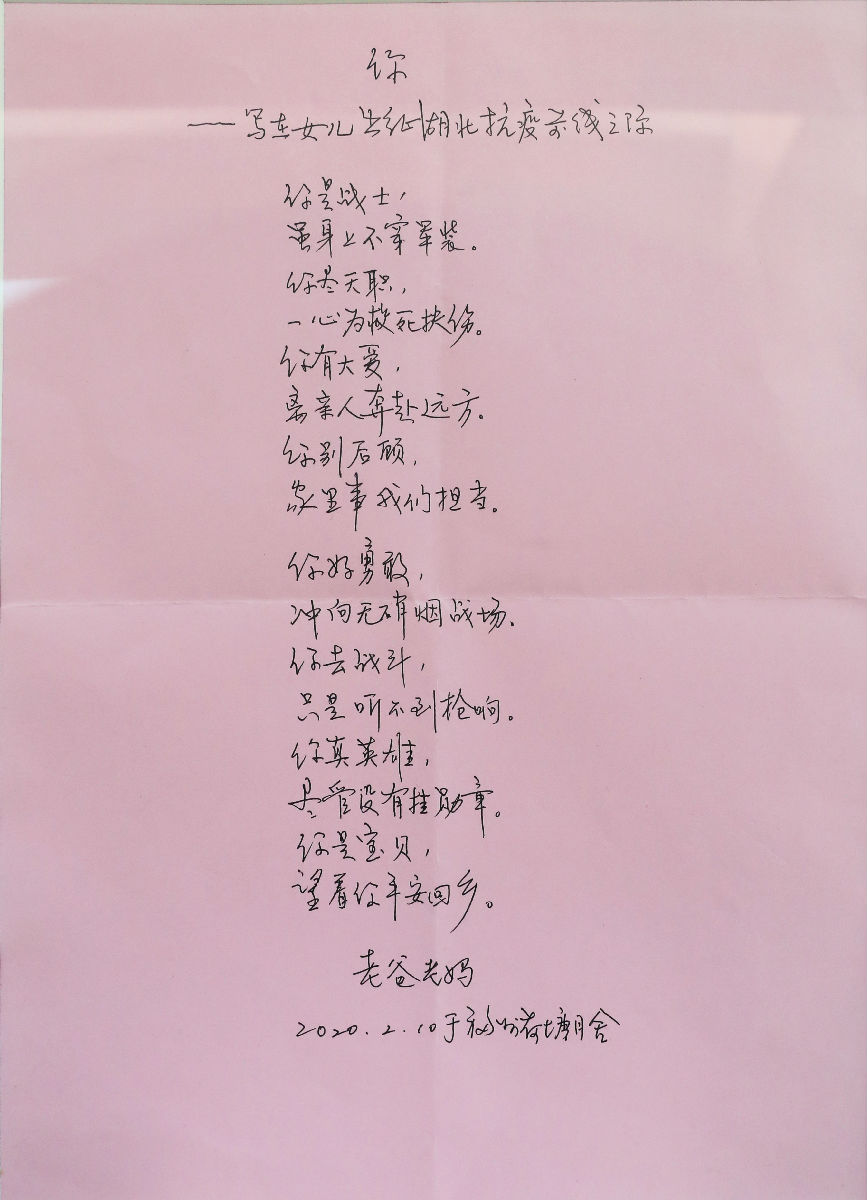 你
——写在女儿出征湖北抗疫前线之际
你是战士，
虽身上不穿军装。
你尽天职，
一心为救死扶伤。
你有大爱，
离亲人奔赴远方。
你别后顾，
家里事我们担当。
你好勇敢，
冲向无硝烟战场。
你去战斗，
只是听不到枪响。
你真英雄，
尽管没有挂勋章。
你是宝贝，
望着你平安回乡。
老爸老妈
2020.2.10于福州荷塘月舍